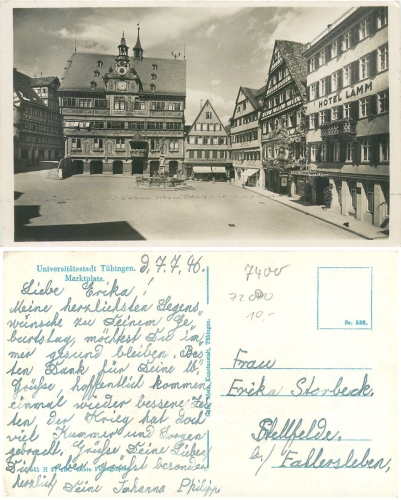 HOTEL LAMM
Universitätsstadt Tübingen.
Marktplatz.
d. 7. 7. 46.
Liebe Erika!
Meine herzlichsten Segens,
wünsche zu Deinem Ge,
burtstag, möchtest Du im,
mer gesund bleiben. Bes,
ten Dank für Deine lb.
Grüße, hoffentlich kommen
einmal wieder bessere Zei,
ten. Der Krieg hat doch
viel Kummer und Sorgen
gebracht. Grüße Deine Lieben
Dich grüßt besonders
herzlich Deine Johanna Philipp
7400
72000
10.-
Nr. 538,
Frau
Erika Storbeck.
Stellfelde.
b/ Fallersleben,